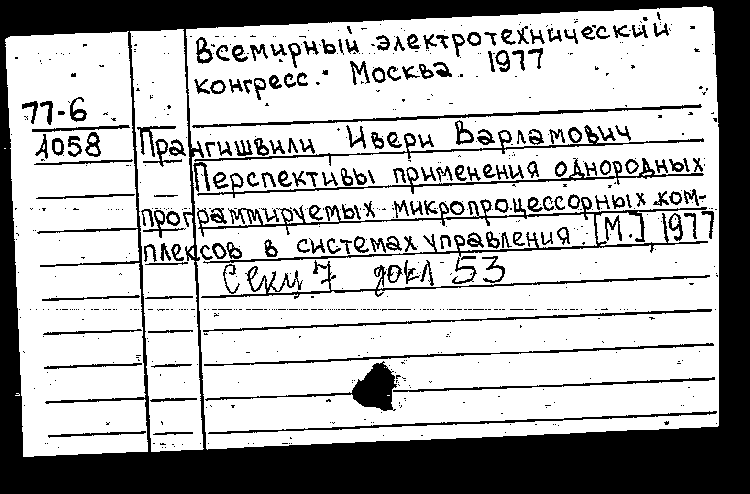 Всемирный электротехнический
конгресс. Москва. 1977
77-6
1058
Прангишвили, Ивери Варламович
Перспективы применения однородных
программируемых микропроцессорных ком-
плексов в системах управления. [М.], 1977
Секц 7 докл 53